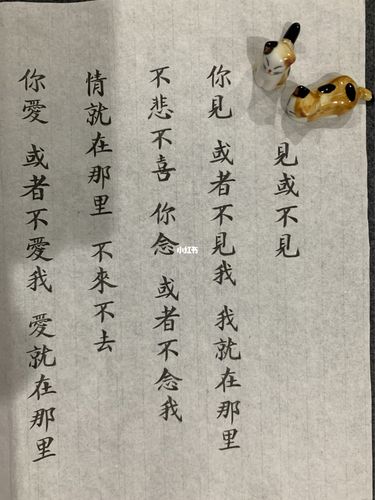 見或不見
你見 或者不見我 我就在那里
不悲不喜 你念 或者不念我
情就在那里 不來不去
你愛 或者不愛我 愛就在那里
小红书